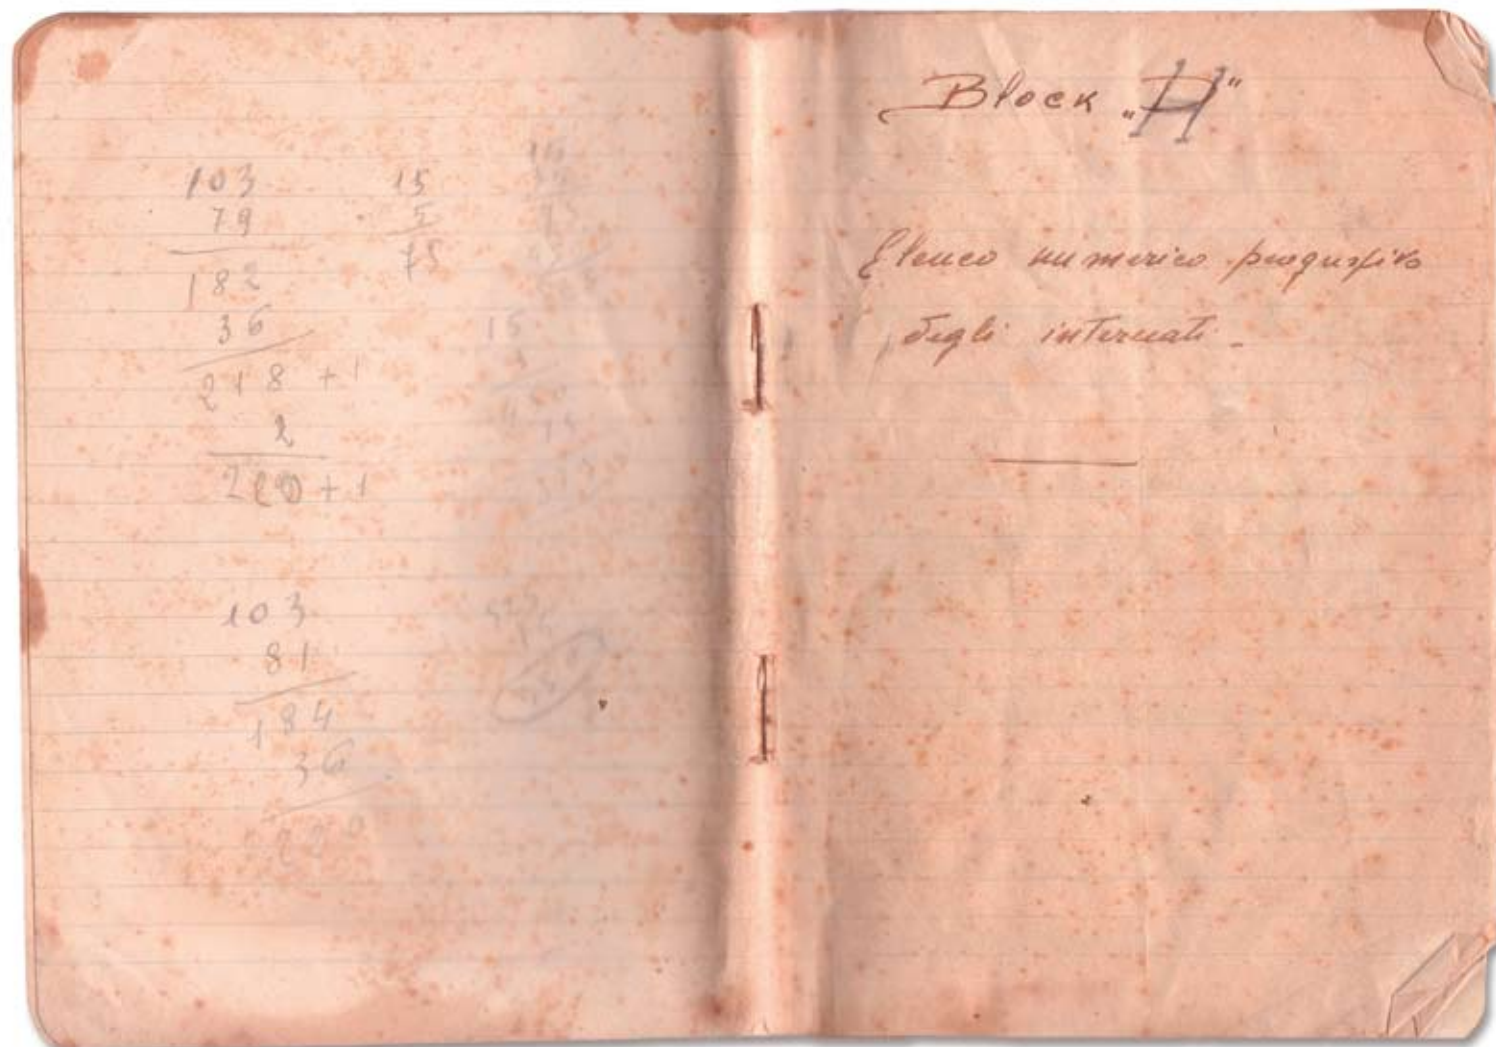 103
79
182
36
218 + 1
2
220 + 1
15
5
75
15
103
81
184
36
220
Block „H"
Elenco numerico progressivo
degli internati.